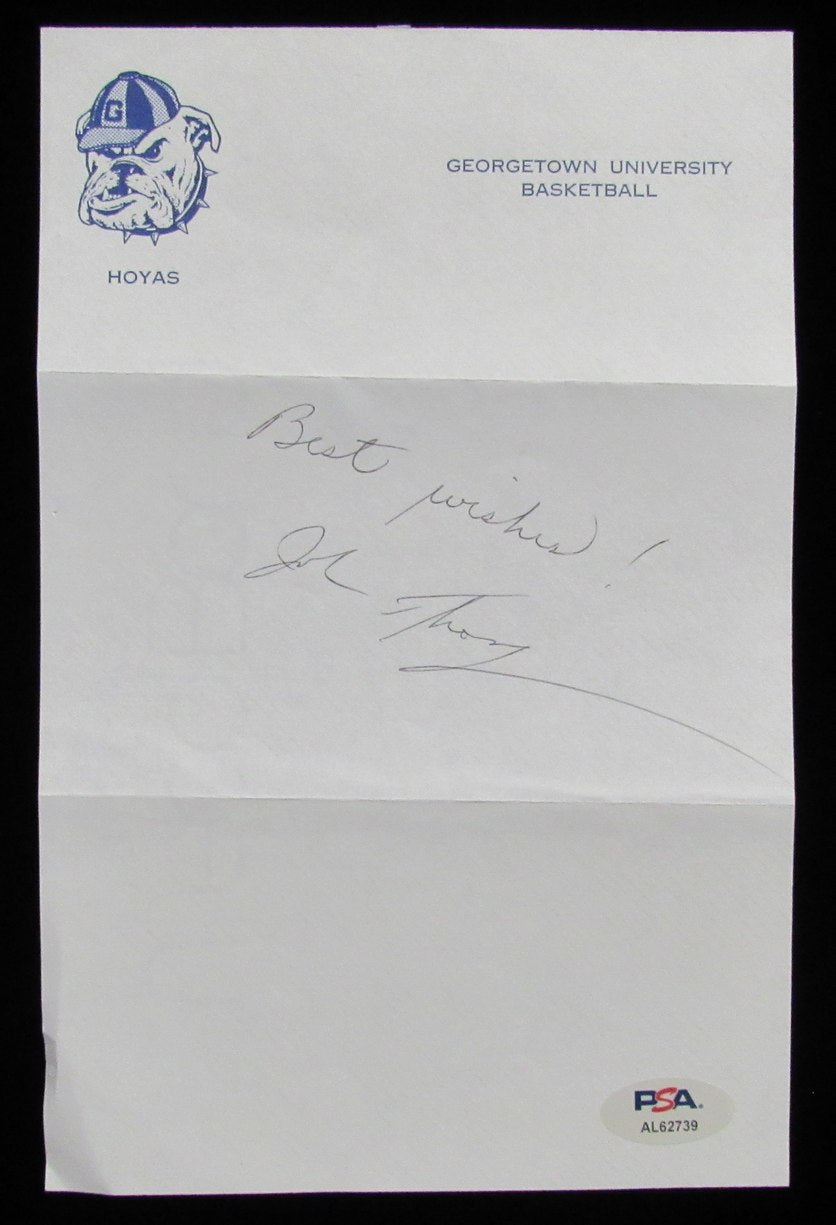 G
GEORGETOWN UNIVERSITY
BASKETBALL
HOYAS
Best wishes!
John Thompson
PSA.
AL62739